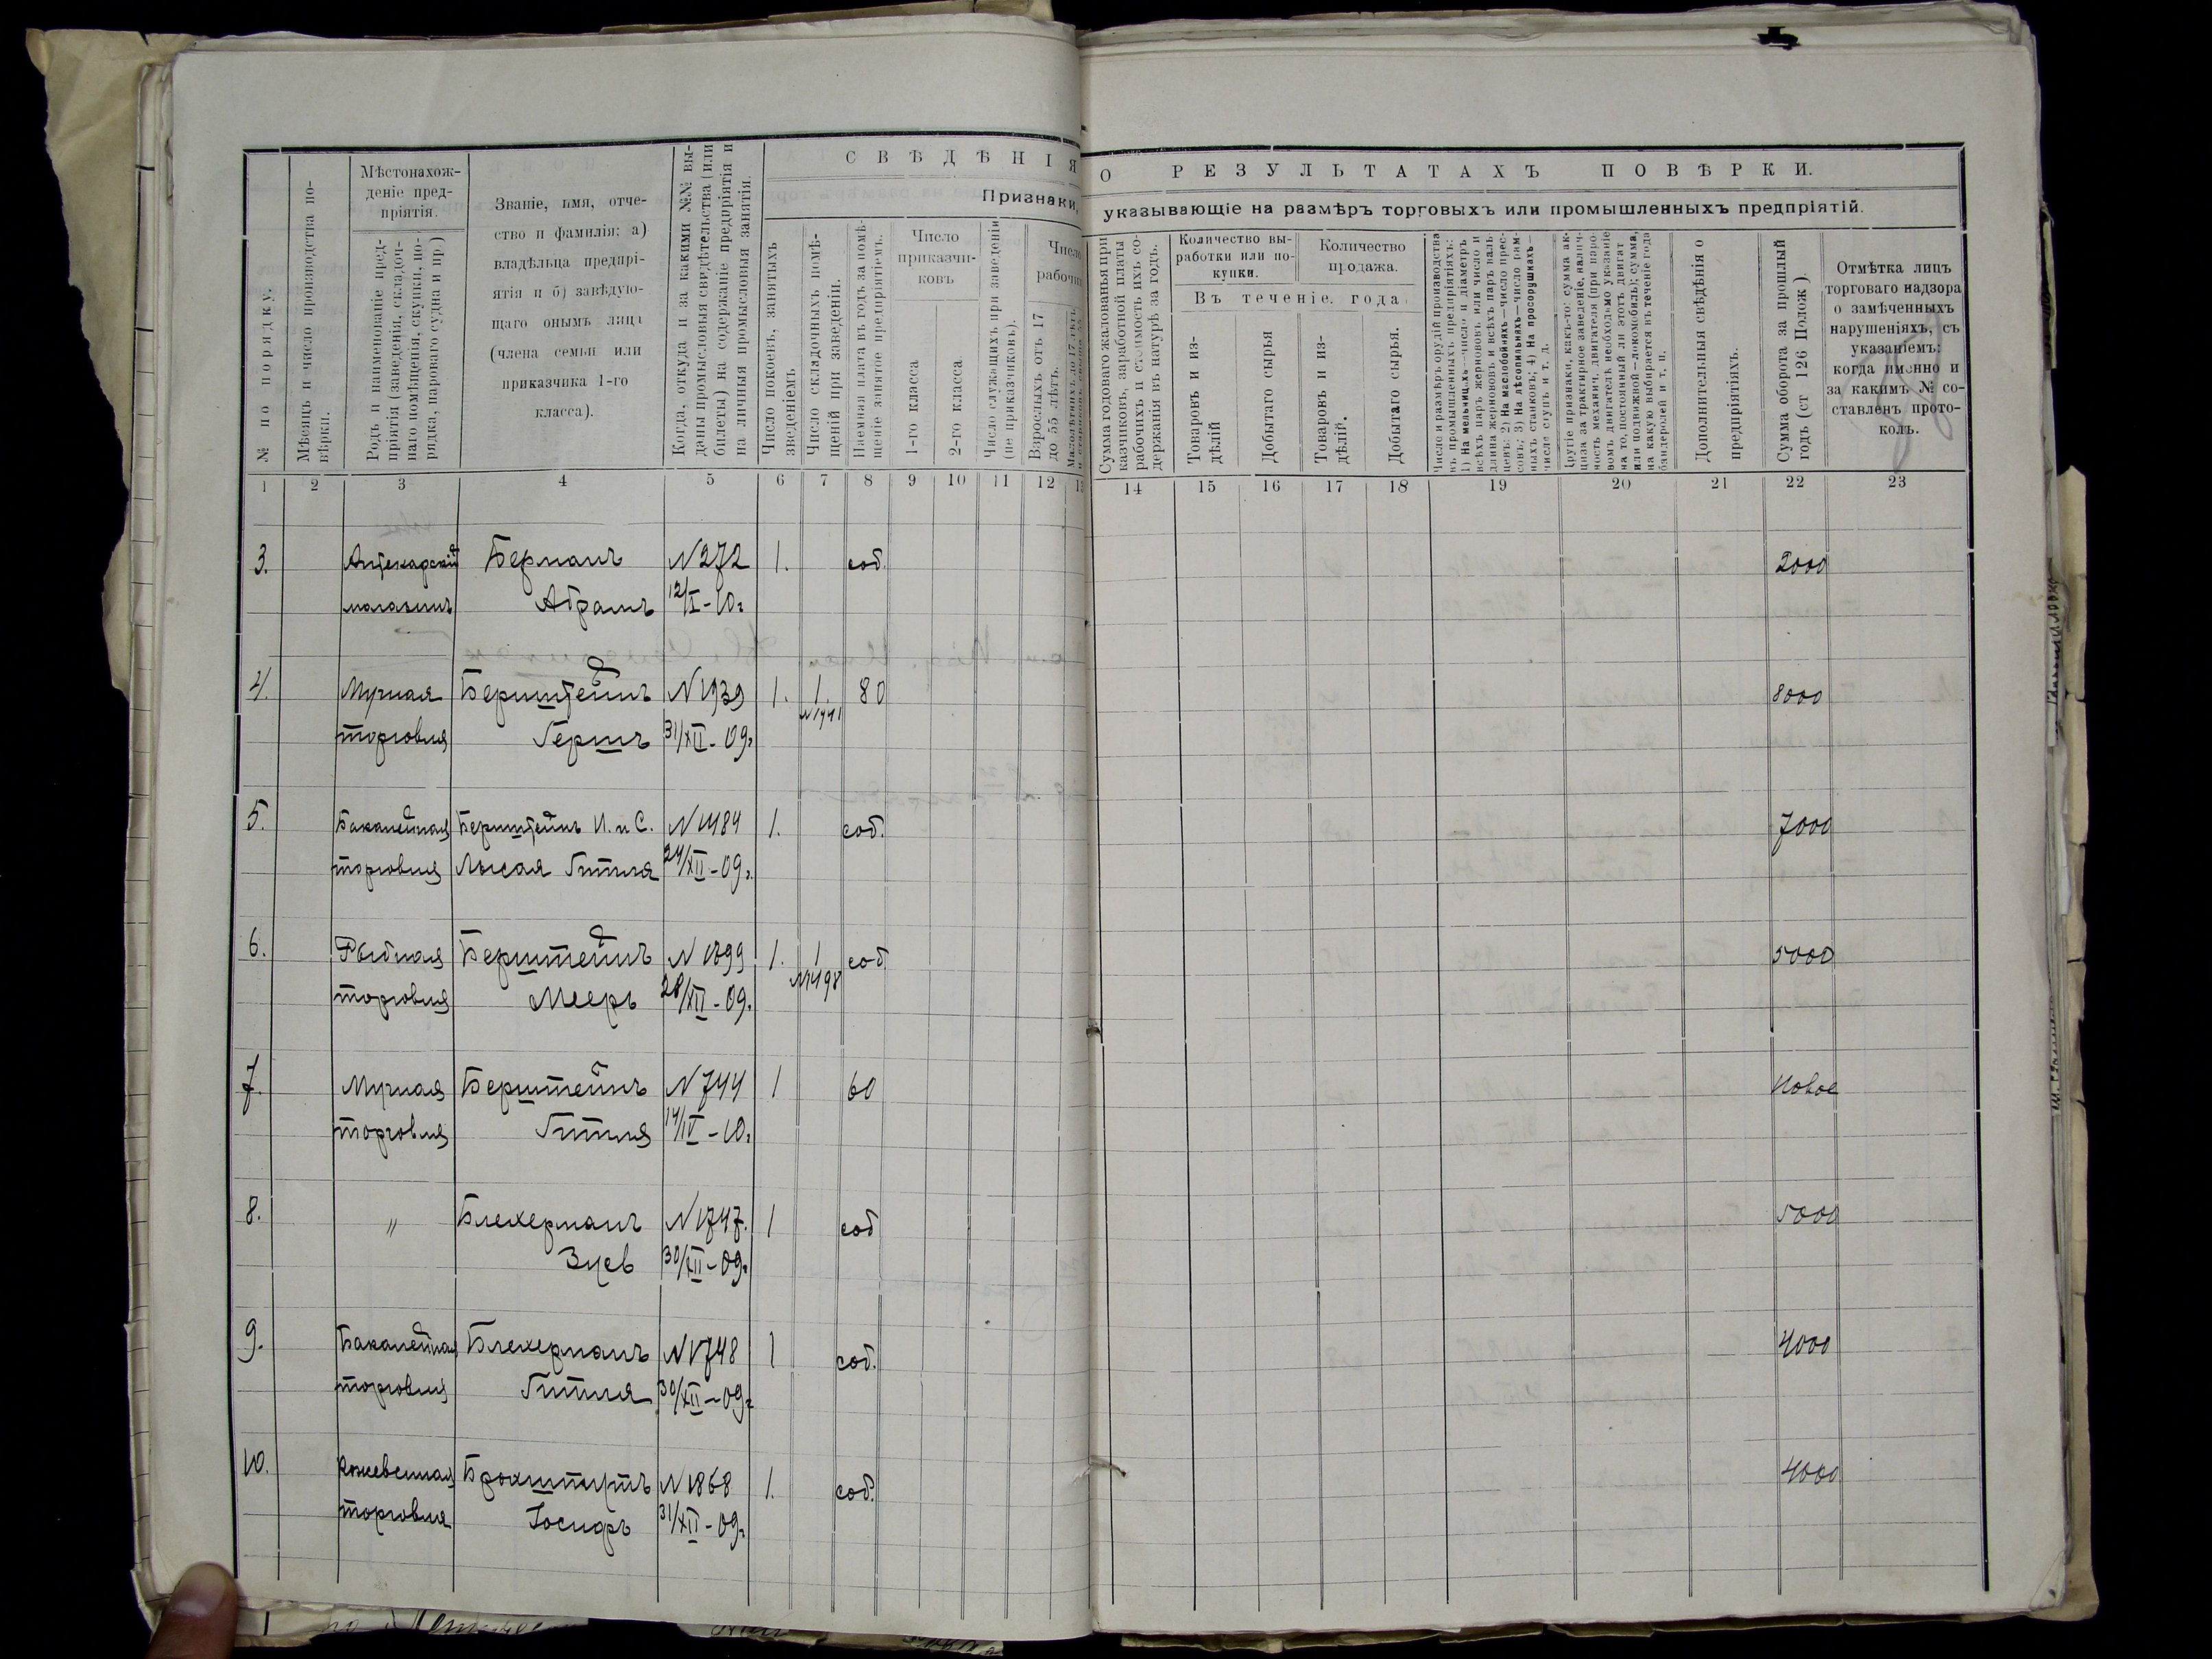 СВѢДѢНІЯ О РЕЗУЛЬТАТАХЪ ПОВѢРКИ.
Признаки, указывающіе на размѣръ торговыхъ или промышленныхъ предпріятій.
№ по порядку.
Мѣсяцъ и число производства по-
вѣрки.
Мѣстонахож-
деніе пред-
пріятія.
Родъ и наименованіе пред-
пріятія (заведенія, складоч-
наго помѣщенія, скупки, по-
рядка, парового судна и пр.)
Званіе, имя, отче-
ство и фамилія: а)
владѣльца предпрі-
ятія и б) завѣдую-
щаго онымъ лица
(члена семьи или
приказчика 1-го
класса).
Когда, откуда и за какими №№ вы-
даны промысловыя свидѣтельства (или
билеты) на содержаніе предпріятія и
на личныя промысловыя занятія.
Число покоевъ, занятыхъ
зведеніемъ
Число складочныхъ помѣ-
щеній при заведеніи.
Наемная плата въ годъ за помѣ-
щеніе занятое предпріятіемъ.
Число
приказчи-
ковъ
1-го класса
2-го класса
Число служащихъ при заведеніи
(не приказчиковъ).
Число
рабочи
Взрослыхъ отъ 17
до 55 лѣтъ.
Малолѣтнихъ до 17 лѣтъ
Сумма годоваго жалованья при
казчиковъ, заработной платы
рабочихъ и стоимость ихъ со-
держанія въ натурѣ за годъ.
Количество вы-
работки или по-
купки.
Количество
продажа.
Въ теченіе года
Товаровъ и из-
дѣлій
Добытаго сырья
Товаровъ и из-
дѣлій.
Добытаго сырья.
Число и размѣръ орудій производства
въ промышленныхъ предпріятіяхъ:
1) На мельницахъ—число и діаметръ
всѣхъ паръ жернововъ или число и
длина жернововъ и всѣхъ паръ валь-
цевъ: 2) На маслобойняхъ—число прес-
совъ; 3) На лѣсопильняхъ—число рам-
ныхъ станковъ; 4) На просорушкахъ—
число ступъ и т. д.
Другіе признаки, какъ-то: сумма ак-
циза за трактирное заведеніе, налич-
ность механич. двигателя (при паро-
вомъ двигателѣ необходимо указаніе
на то, постоянный ли этотъ двигат
или подвижной—локомобиль); сумма,
на какую выбирается въ теченіе года
бандеролей и т. п.
Дополнительныя свѣдѣнія о
предпріятіяхъ.
Сумма оборота за прошлый
годъ (ст 126 Полож.)
Отмѣтка лицъ
торговаго надзора
о замѣченныхъ
нарушеніяхъ, съ
указаніемъ:
когда именно и
за какимъ № со-
ставленъ прото-
колъ.
1 2 3 4 5 6 7 8 9 10 11 12 14 15 16 17 18 19 20 21 22 23
3. Аптекарскій Берманъ N 272 1. соб. 2000
магазинъ Абрамъ 12/I-10г
4. Мучная Бернштейнъ N 1939 1. 1. 80 8000
N 1941
торговля Гершъ 31/XII-09г
5. Бакалейная Бернштейнъ И. и С. N 1484 1. соб. 7000
торговля Гитля 24/XII-09г.
6. Рыбная Берштейнъ N 1699 1. 1 соб 5000
N 1498
торговля Мееръ 28/XII-09г.
7. Мучная Берштейнъ N 744 1 60 новое
торговля Гитля 14/IV-10г
8. " Блехерманъ N 1747. 1 соб 5000
30/XII-09г
9. Бакалейная Блехерманъ N 1748 1 соб. 4000
торговля Гитля 30/XII-09г
10. Кожевенная N 1868 1. соб. 4000
торговля 31/XII-09г